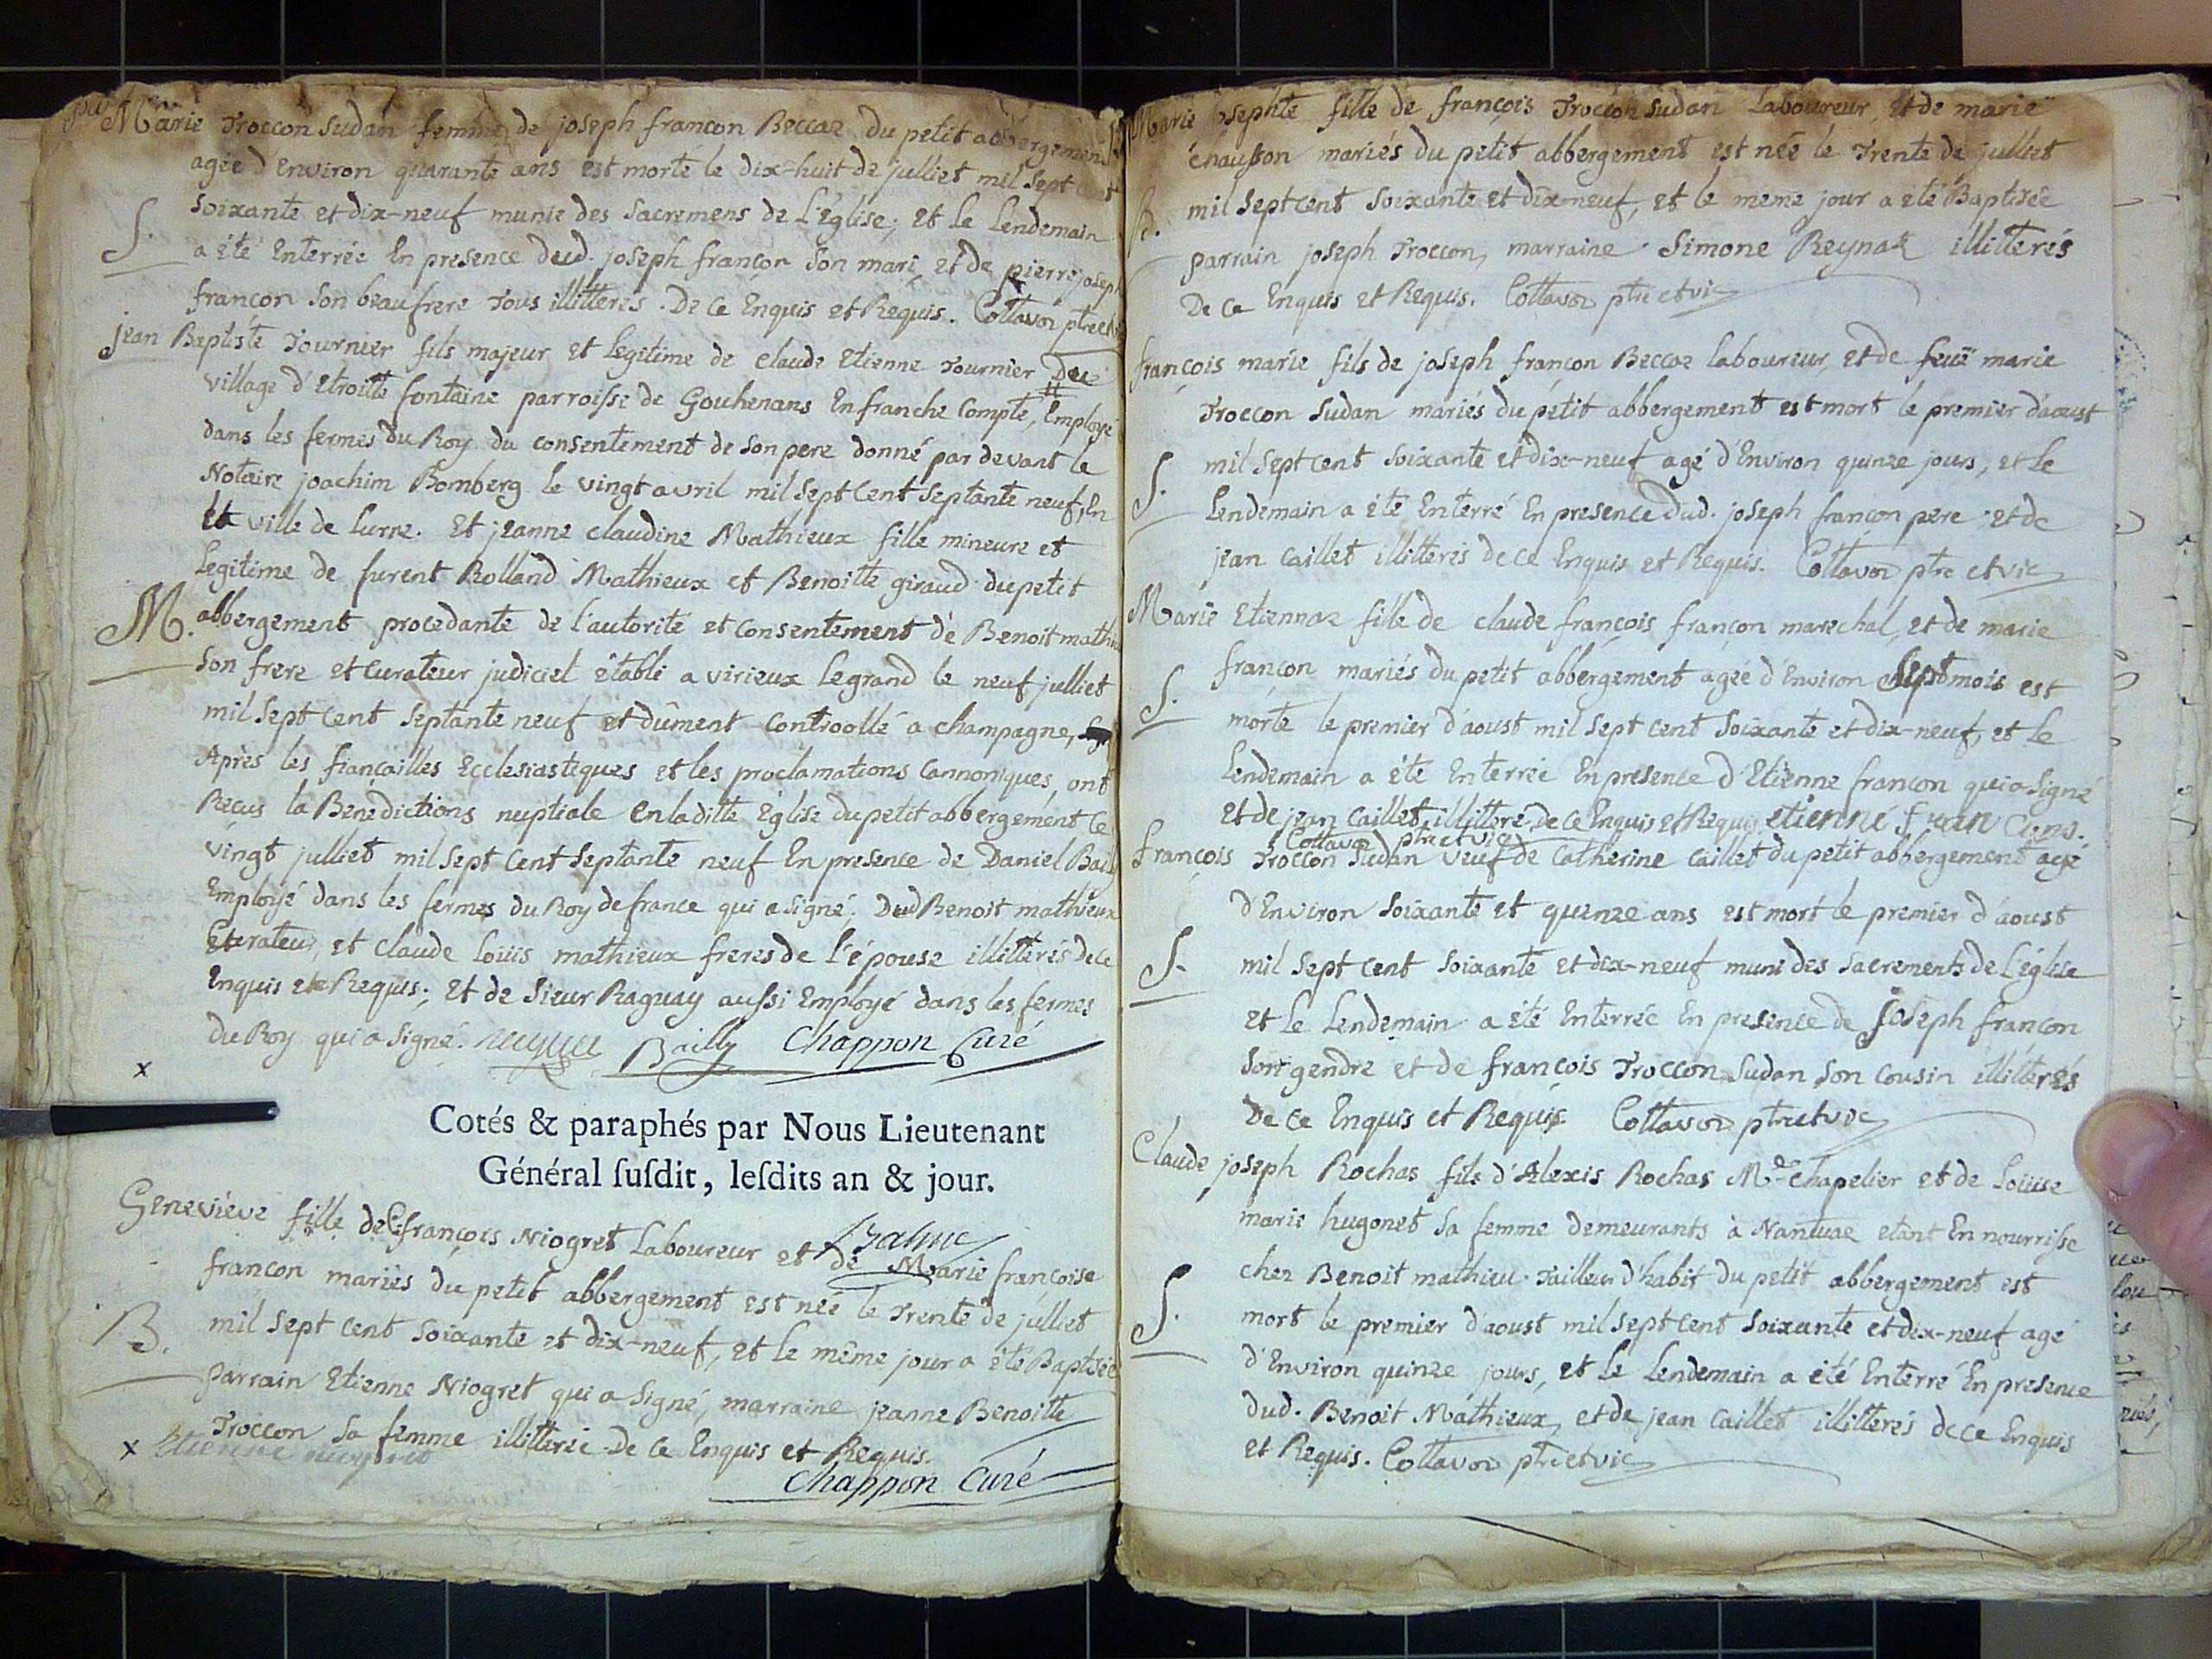 Marie Troccon Sudan femme de joseph françon Beccaz du petit abbergement
agée d'Environ quarante ans est morte le dix-huit de julliet mil Sept cent
S. Soixante et dix-neuf munie des Sacremens de L'Église; et Le Lendemain
a été Enterrée En presence dud. joseph françon Son mari, et de pierre joseph
françon Son beaufrere Tous illitterés. De Ce Enquis et Requis. Collavoz ptre et
jean Baptiste Tournier fils majeur et Legitime de claude Etienne Tournier Du
village d'Etroitte fontaine parroisse de Gouhenans Enfranche Compte, Employé
dans les fermes du Roy du consentement de Son pere donné par devant le
Notaire joachim Bomberg le vingt avril mil Sept Cent Septante neuf, En
la ville de Lurre. Et jeanne claudine Mathieux fille mineure et
Legitime de furent Rolland Mathieux et Benoitte giraud du petit
M. abbergement procedante de l'autorité et consentement de Benoit mathieu
Son frere et Curateur judiciel établi a virieux Legrand le neuf julliet
mil Sept Cent Septante neuf et dûment controollé a champagne,
Après les fiançailles Ecclesiastiques et les proclamations Cannoniques, ont
Reçus la Benedictions nuptiale en laditte Église du petit abbergement ce
vingt julliet mil Sept Cent Septante neuf En presence de Daniel Bailly
Employé dans les fermes du Roy de france qui a Signé. Dud Benoit mathieux
Curateur, et Claude Loüis mathieux freres de l'épouse illitterés de ce
Enquis et Requis; Et de Sieur Raguay aussi Employé dans les fermes
du Roy qui a Signé. Bailly Chappon Curé
x
Cotés & paraphés par Nous Lieutenant
Général susdit, lesdits an & jour.
Balme
Geneviève fille de Cl françois Niogret Laboureur et de Marie françoise
françon mariés du petit abbergement est née le Trente de julliet
B. mil Sept cent Soixante et dix-neuf, et Le même jour a été Baptisée
Parrain Etienne Niogret qui a Signé, marraine jeanne Benoitte
Troccon Sa femme illitterée De Ce Enquis et Requis.
x Etienne niogret
Chappon Curé
Marie josephte fille de françois Troccon Sudan Laboureur, et de marie
chausson mariés du petit abbergement est née le Trente de julliet
B. mil Sept cent Soixante et dix-neuf, et le meme jour a été Baptisée
parrain joseph Troccon, marraine Simone Reynaz illitterés
De Ce Enquis et Requis. Collavoz ptre et vic
françois marie fils de joseph françon Beccaz laboureur, et de feuë marie
Troccon Sudan mariés du petit abbergement est mort le premier d'aoust
S. mil Sept Cent Soixante et dix-neuf agé d'Environ quinze jours, et Le
Lendemain a été Enterré En presence dud. joseph françon pere et de
jean caillet illitterés de ce Enquis et Requis. Collavoz ptre et vic
Marie Etiennaz fille de claude françois françon marechal, et de marie
françon mariés du petit abbergement agée d'Environ Sept mois est
S. morte le premier d'aoust mil Sept cent Soixante et dix-neuf, et Le
Lendemain a été Enterrée En presence d'Etienne françon qui a Signé
et de jean caillet illitteré, de ce Enquis et Requis etienne
Collavoz ptre et vic
françois Troccon Sudan veuf de Catherine caillet du petit abbergement agé
d'Environ Soixante et quinze ans est mort le premier d'aoust
S. mil Sept cent Soixante et dix-neuf muni des Sacrements de L'église
et Le Lendemain a été Enterrée En presence de joseph françon
Son gendre et de françois Troccon Sudan Son Cousin illitterés
De Ce Enquis et Requis Collavoz ptre et vic
Claude joseph Rochas fils d'Alexis Rochas Md Chapelier et de Loüise
marie hugonet Sa femme demeurants à Nantuae etant En nourrisse
chez Benoit mathieu Tailleur d'habit du petit abbergement est
S. mort le premier d'aoust mil Sept cent Soixante et dix-neuf agé
d'Environ quinze jours, et Le Lendemain a été Enterré En presence
dud. Benoit Mathieux, et de jean caillet illitterés de ce Enquis
et Requis. Collavoz ptre et vic